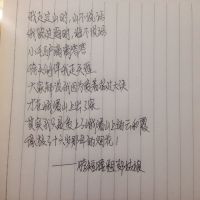 我走过山时,山不说话
我路过海时,海不说话
小毛驴滴滴答答
倚天剑伴我走天涯
大家都说我因为爱着杨过大侠
才在峨眉山上出了家
其实我只是爱上了峨眉山上的云和霞
像极了十六岁那年的烟花!